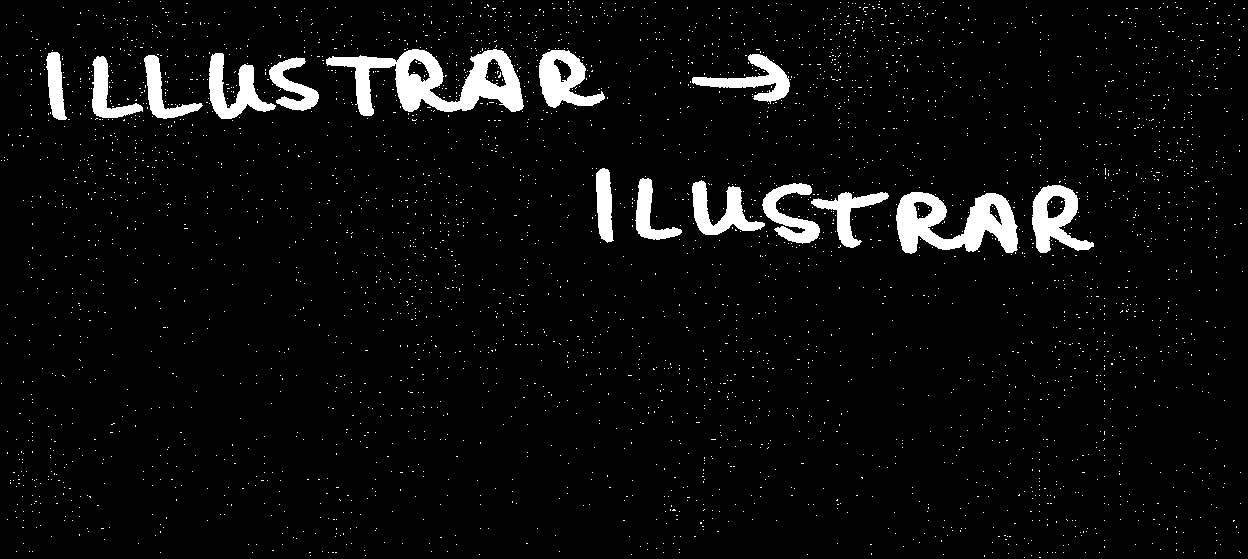 ILLUSTRAR →
ILUSTRAR